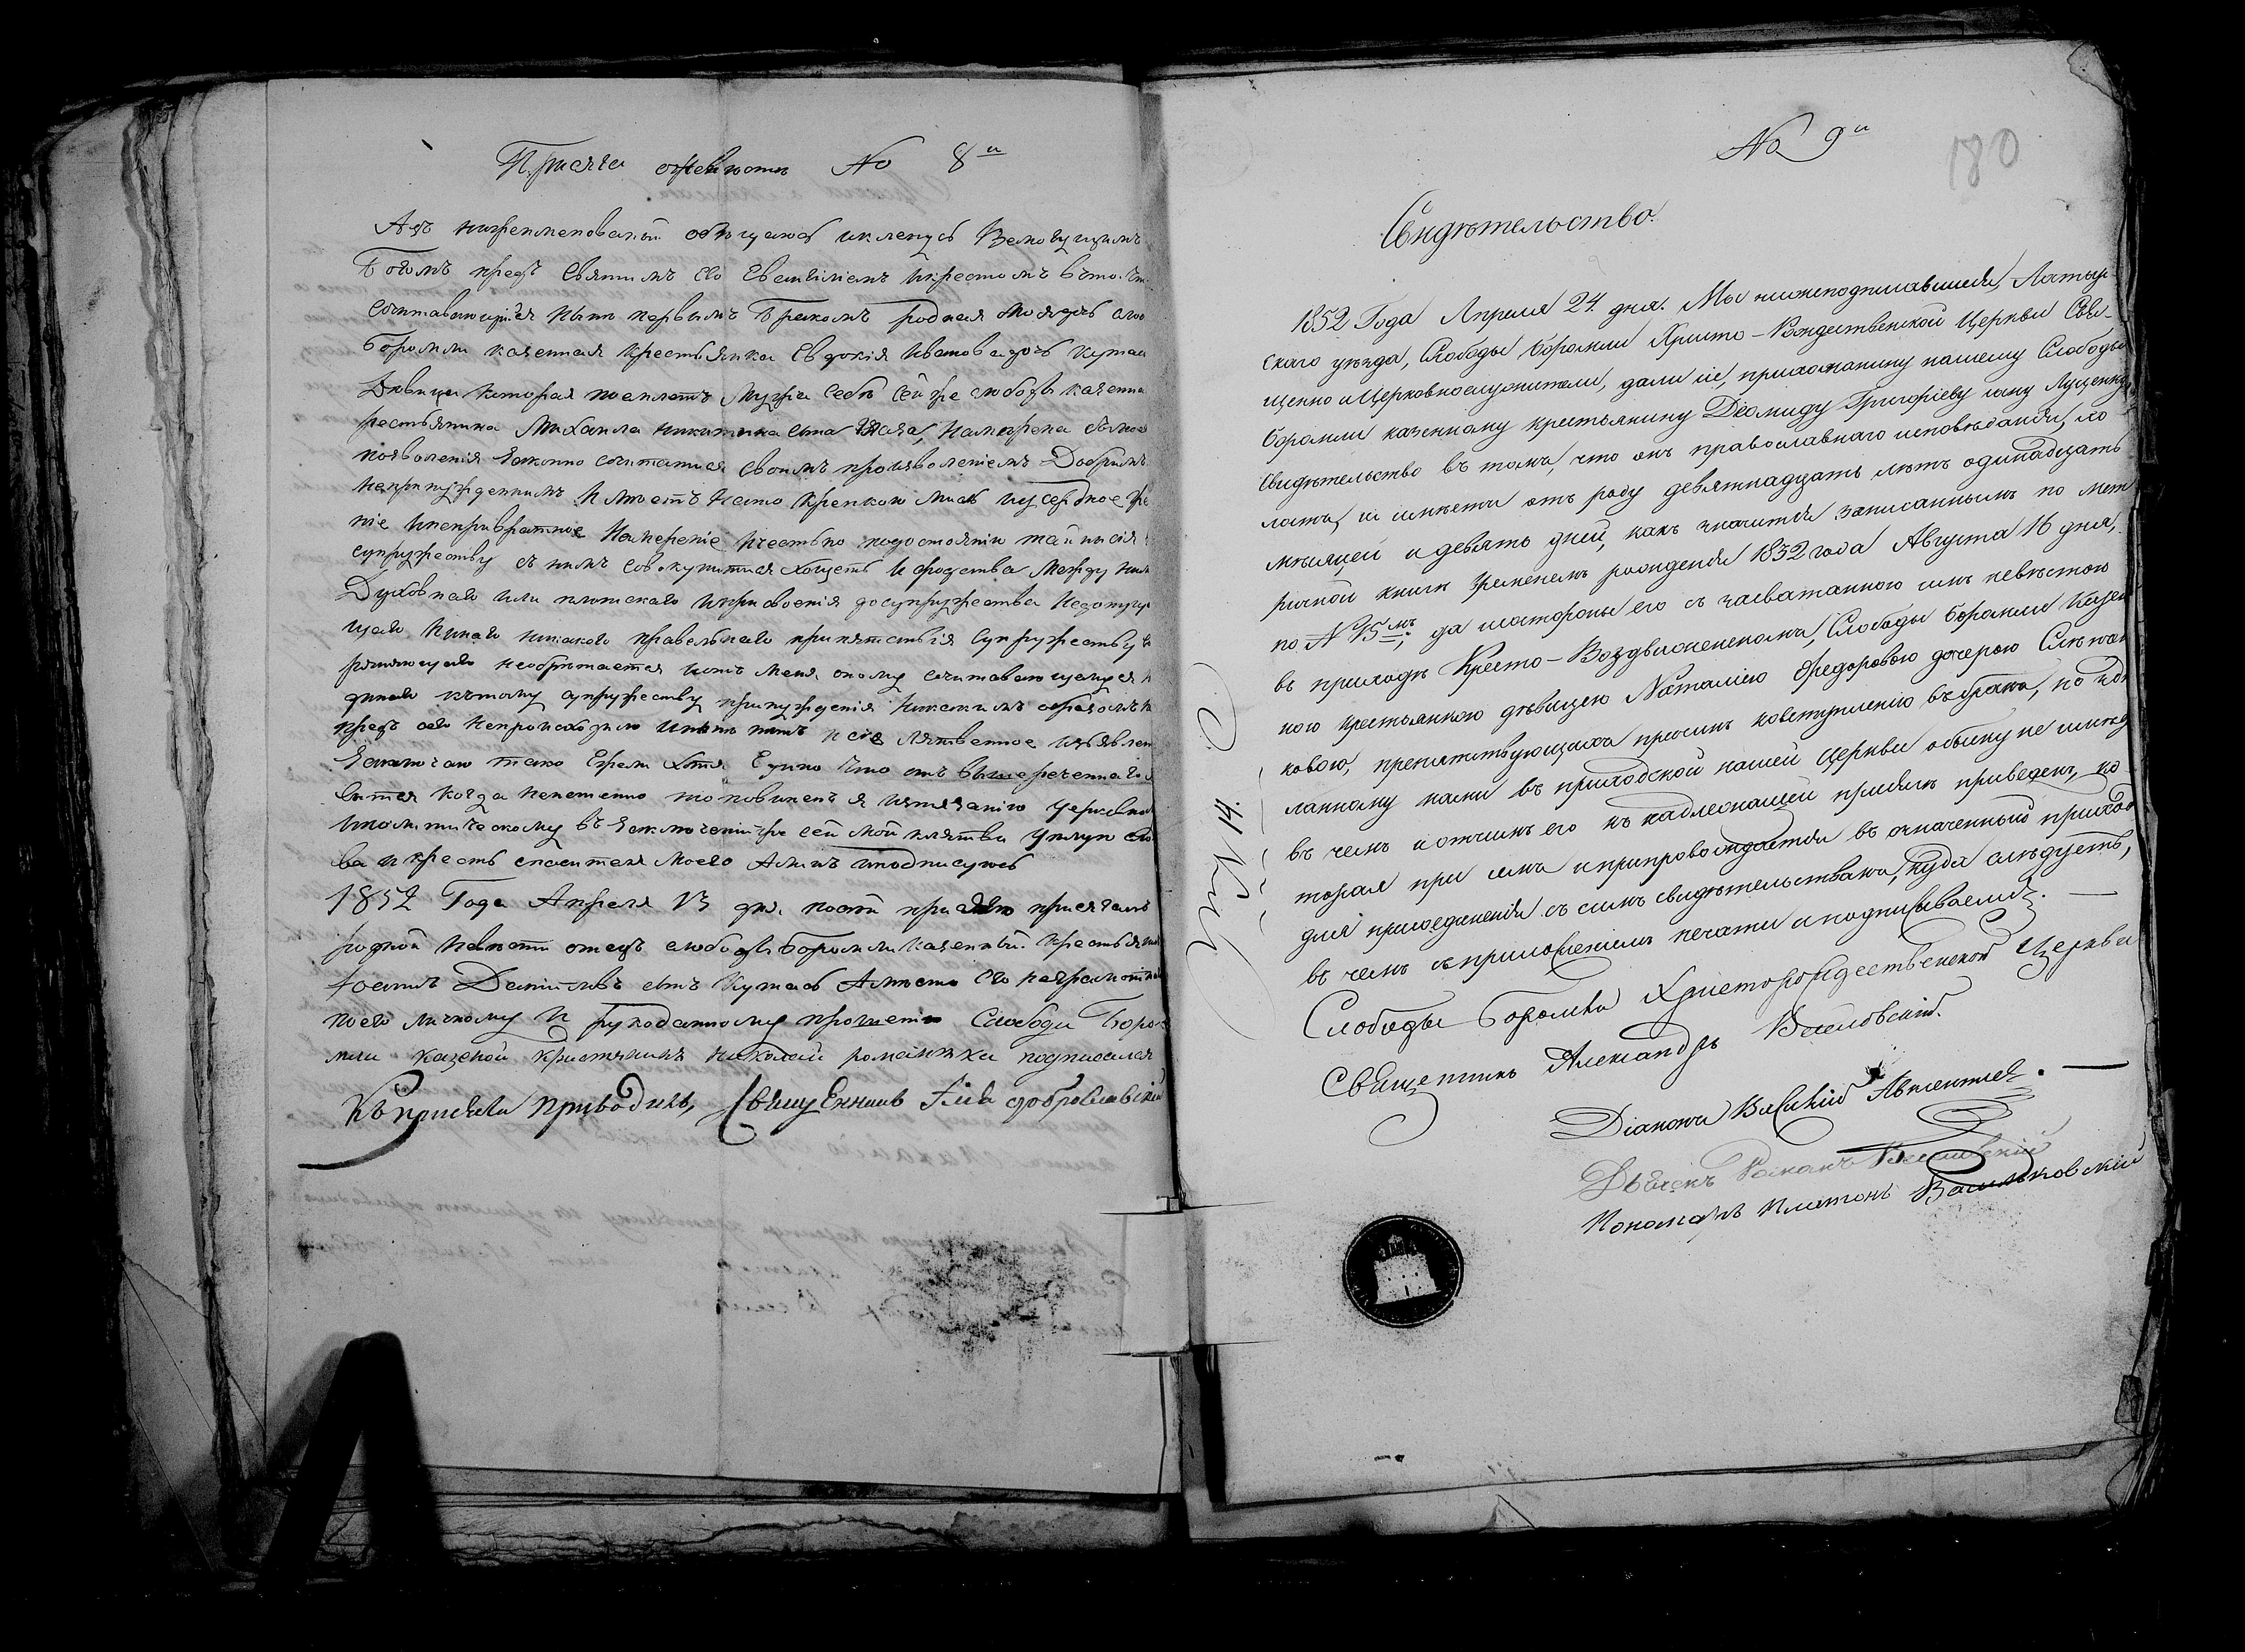 Присяга о невѣсте No 8й
Азъ нижеименованый обѣщаюсь и кленусь Всемогущимъ
Богомъ предъ Святимъ его Евангелиемъ и крестомъ в томъ что
сочитавающейся ныне первымъ Бракомъ родная моя дочь сло
Боромли казенная крестьянка Евдокія Иванова дочь Кутая
Дѣвица которая поемлетъ мужа себѣ сей же слободы казенна
рестьянина Михаила Никитина сына намѣрена
позволенія Законно сочитатися своимъ произволениемъ Добримъ
непринужденнимъ и имеетъ на то крепкою мисль и усердное же
ніе и непривратное Намерение и честно по достоянію тайни сія
супружеству съ нимъ совокупитися хощеть и сродства между ними
Духовнаго или плотскаго и присвоенія до супружества недопущ
щаго и инаго никакого правельнаго припятствія Супружеству
необрѣтается и отъ меня оному сочитавающемуся
къ тому супружеству принужденія никакимъ образомъ
предъ сего непроисходило и нынѣ нѣтъ и сіе клятвенное изъявлен
Заключаю тако Ежели хотя Едино что отъ вышереченнаго
вится когда неистенно то повиненъ я истязанію церковно
и политическому въ заключеніи же сей моей клятвы целую сло
ва и крестъ спасителя моего Аминь подписуюсь
1852 Года Апреля 13 дня по сей присягѣ присягалъ
родной невѣсти отецъ слободы Боромли казенный крестьянинъ
Іоаннъ Даниловъ сынъ Кутасъ А вместо его неграмотнаго
по его личному и рукоданному прошению Слободы Боро
мли казеной кристянинъ Николай романенка подписался
Къ присяги приводилъ, Священникъ Іліа добровлянскій
No 9й
180
Свидѣтельство.
1852 Года Апреля 24. дня. Мы нижеподписавшиеся, Ахтыр-
скаго уѣзда, Слободы Боромли Христо-Рождественской Церкви Свя-
щенно и Церковнослужители, дали сіе, прихожанину нашему Слободы
Боромли казенному крестьянину Діомиду Григоріеву сыну Луценку
Свидѣтельство въ томъ, что онъ православнаго исповѣданія, хо
лостъ, и имѣетъ отъ роду девятнадцать лѣтъ одинадцать
мѣсяцей и девять дней, какъ значится записаннымъ по мет
рической книгѣ временемъ рожденія 1832 года Августа 16 дня,
по N 45мъ, да и стороны его съ засватанною имъ невѣстою
въ приходѣ Кресто-Воздвиженскомъ, Слободы Боромли Казен
ною крестьянкою дѣвицею Наталіею Федоровою дочерою
ковою, препятствующихъ причинъ ковступленію въ бракъ, по здѣ
ланному нами въ приходской нашей Церкви обыску не имѣетъ
въ чемъ и отчимъ его къ надлежащей присягѣ приведенъ, ко-
торая при семъ и припровождается въ означенный приходъ
для присоединенія съ симъ свидѣтельствомъ, куда слѣдуетъ,
въ чемъ съ приложеніемъ печати и подписываемся. —
Слободы Боромли Христорождественской Церкви
Священникъ Александръ Василовскій.
Діаконъ Василій
Дьячекъ Романъ
Пономарь Платонъ Васильковскій
No 14.